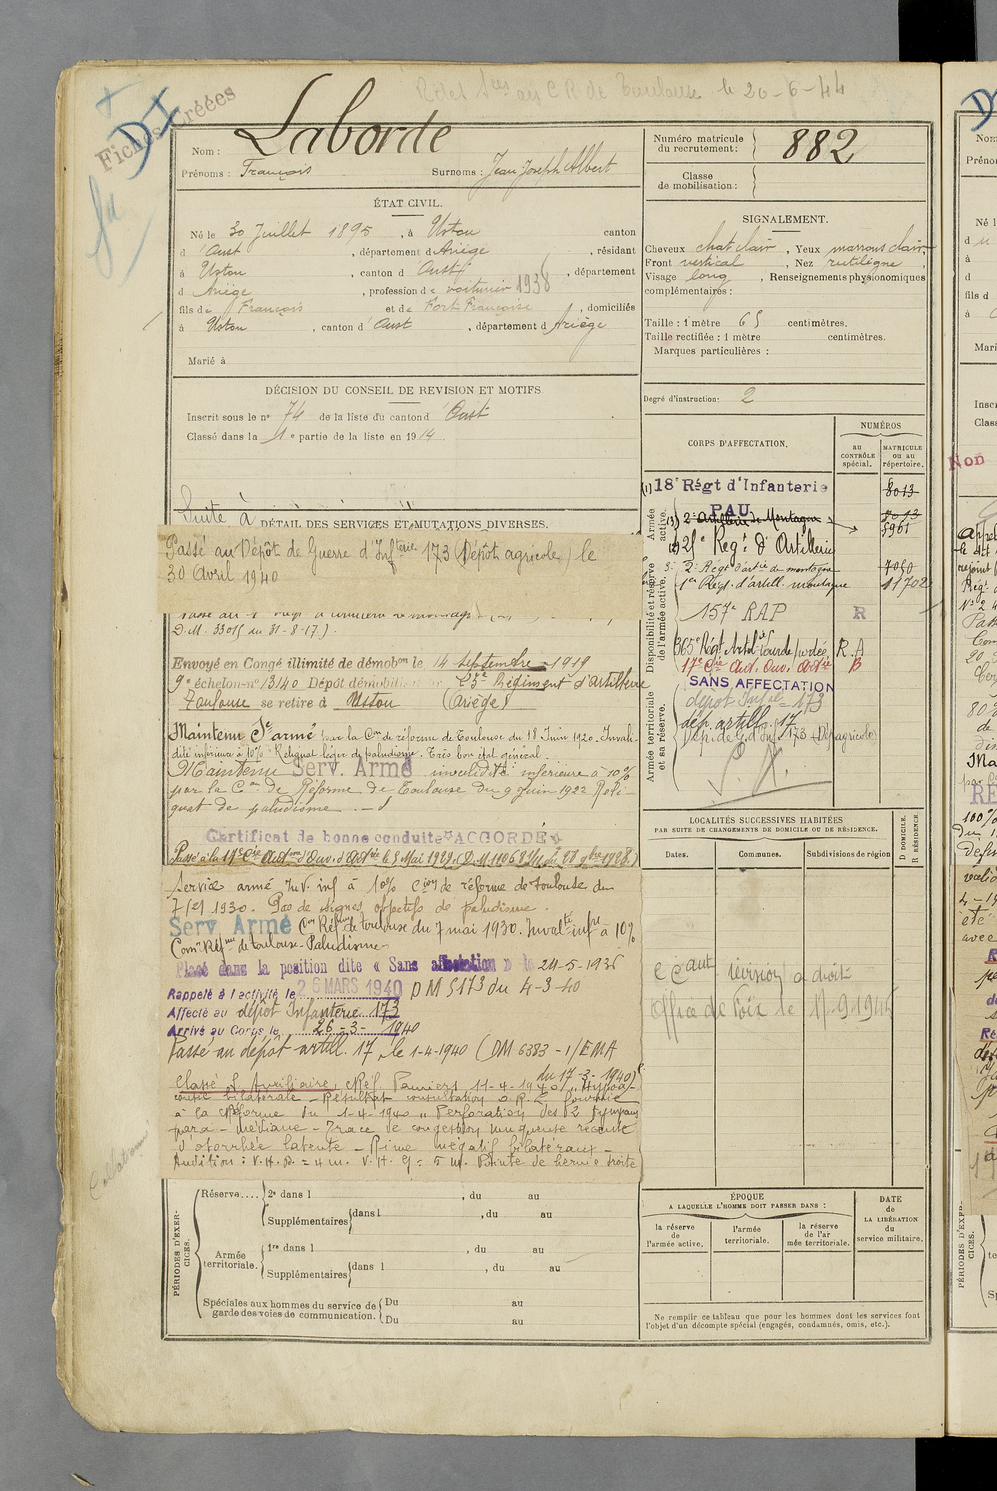 Rôles au C.R. de Toulouse le 20-6-44
Fiches Créées
DI
Nom : Laborde
Prénoms : François Surnoms : Jean Joseph Albert
Numéro matricule du recrutement : 882
Classe de mobilisation :
ÉTAT CIVIL.
Né le 30 Juillet 1895, à Ustou canton
d'Oust, département d Ariège, résidant
à Ustou, canton d'Oust, département
d Ariège, profession de voiturier 1938
fils de François et de Fort Françoise, domiciliés
à Ustou, canton d'Oust, département d Ariège
Marié à
SIGNALEMENT.
Cheveux chat clair, Yeux marrons clair,
Front vertical, Nez rectiligne,
Visage long, Renseignements physionomiques
complémentaires :
Taille : 1 mètre 65 centimètres.
Taille rectifiée : 1 mètre centimètres.
Marques particulières :
Degré d'instruction : 2
DÉCISION DU CONSEIL DE REVISION ET MOTIFS
Inscrit sous le n° 74 de la liste du canton d'Oust
Classé dans la 1e partie de la liste en 1914
CORPS D'AFFECTATION.
NUMÉROS
AU CONTRÔLE spécial.
MATRICULE ou au répertoire.
Armée active.
Disponibilité et réserve de l'armée active.
Armée territoriale et sa réserve.
(1) 18e Régt d'Infanterie 8013
PAU
2e Artillerie de Montagne 5961
2e Régt d'artie de montagne
1er Régt. d'artill. montagne 11702
157e RAP R
365e Régt Artol Lourde R.A
17e Cie Aut. Ouv. Artie B
SANS AFFECTATION
dépôt Infie 173
dép. artill. 17
Dép. de G. d'Inf. 173 (Dép. agricole)
Suite à
DÉTAIL DES SERVICES ET MUTATIONS DIVERSES.
Passé au Dépôt de Guerre d'Infterie 173 (Dépôt agricole) le
30 Avril 1940
D.M. 33015 du 31-8-17.)
Envoyé en Congé illimité de démobon le 14 septembre 1919
9e échelon-n° 13140 Dépôt démobilisateur Régiment d'artillerie
Toulouse se retire à Ustou (Ariège)
Maintenu Sce armé par la Con de réforme de Toulouse du 18 Juin 1920. Invali-
dité inférieure à 10% Reliquat léger de paludisme. Très bon état général.
Maintenu Serv. Armé invalidité inférieure à 10%
par la Con de Réforme de Toulouse du 9 Juin 1922 Reli-
quat de paludisme.
Certificat de bonne conduite "ACCORDÉ"
Service armé Inv. inf à 10% Cion de réforme de Toulouse du
7/51 1930. Pas de signes objectifs de paludisme.
Serv. Armé Con Réfme de Toulouse du 7 mai 1930. Invalté infre à 10%
Con Réfme de Toulouse - Paludisme
Placé dans la position dite « Sans affectation » le 24-5-1936
Rappelé à l'activité le 26 MARS 1940 DM 5173 du 4-3-40
Affecté au dépôt Infanterie 173
Arrivé au Corps le 26-3-1940
Passé au dépôt artill. 17, le 1-4-1940 (DM 6383-1/EMA
du 17-3-1940)
Classé S. Auxiliaire, Réf. Pamiers 11-4-1940 "Hypoa-
cousie bilatérale - Résultat consultation O.R.L fournie
à la Réforme du 1-4-1940 " Perforation des 2 tympans
para-médiane - Trace de congestion muqueuse récente
d'otorrhée latente - Rinne négatif bilatéraux -
Audition : V.H.D. = 4 m. V.H. G = 5 m. Pointe de hernie droite
LOCALITÉS SUCCESSIVES HABITÉES
PAR SUITE DE CHANGEMENTS DE DOMICILE OU DE RÉSIDENCE.
Dates. Communes. Subdivisions de région
D DOMICILE.
R RÉSIDENCE.
Office de Foix le
PÉRIODES D'EXERCICES.
Réserve.... 2e dans l , du au
Supplémentaires dans l , du au
Armée territoriale. 1re dans l , du au
Supplémentaires dans l , du au
Spéciales aux hommes du service de garde des voies de communication. Du au
Du au
ÉPOQUE
A LAQUELLE L'HOMME DOIT PASSER DANS :
la réserve de l'armée active.
l'armée territoriale.
la réserve de l'armée territoriale.
DATE de LA LIBÉRATION du service militaire.
Ne remplir ce tableau que pour les hommes dont les services font
l'objet d'un décompte spécial (engagés, condamnés, omis, etc.).